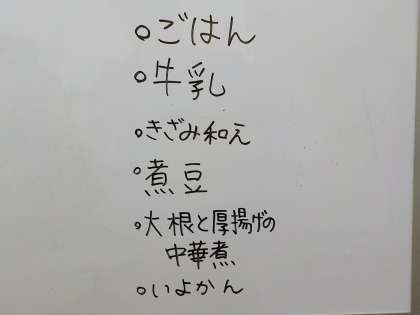 ○ごはん
○牛乳
○きざみ和え
○煮豆
○大根と厚揚げの
中華煮
○いよかん